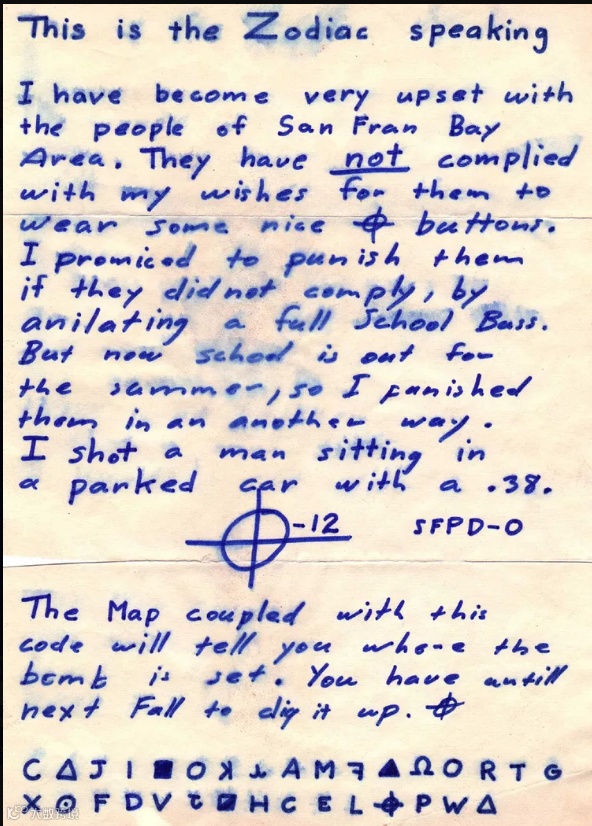 This is the Zodiac speaking
I have become very upset with
the people of San Fran Bay
Area. They have not complied
with my wishes for them to
wear some nice ⌖ buttons.
I promiced to punish them
if they did not comply, by
anilating a full School Buss.
But now school is out for
the summer, so I punished
them in an another way.
I shot a man sitting in
a parked car with a .38.
⌖-12 SFPD-0
The Map coupled with this
code will tell you where the
bomb is set. You have untill
next Fall to dig it up. ⌖
C Δ J I ■ O ꓘ ⅄ A M ꟻ ▲ Ω O R T G
X ⊙ F D V Ɛ ◪ H C E L ⌖ P W Δ
大数跨境